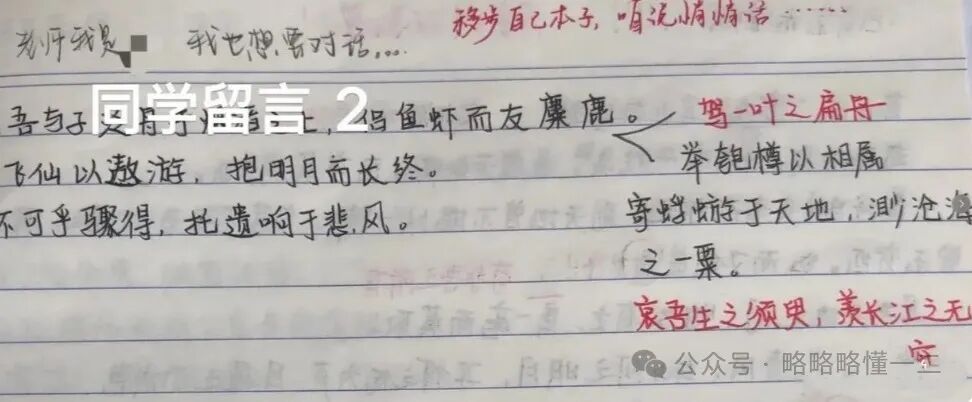 移步自己本子,咱说悄悄话……
老师我是 我也想要对话....
同学留言 2
吾与子 侣鱼虾而友麋鹿。
驾一叶之扁舟
飞仙以遨游,抱明月而长终。
举匏樽以相属
不可乎骤得,托遗响于悲风。
寄蜉蝣于天地,渺沧海
之一粟。
哀吾生之须臾,羡长江之无
穷
公众号·略略略懂一